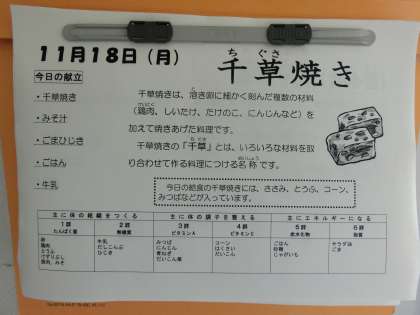 11月18日（月）
千草焼き
ち ぐさ
今日の献立
・千草焼き
・みそ汁
・ごまひじき
・ごはん
・牛乳
千草焼きは、溶き卵に細かく刻んだ複数の材料
（鶏肉、しいたけ、たけのこ、にんじんなど）を
加えて焼きあげた料理です。
千草焼きの「千草」とは、いろいろな材料を取
り合わせて作る料理につける名称です。
今日の給食の千草焼きには、ささみ、とうふ、コーン、
みつばなどが入っています。
主に体の組織をつくる 主に体の調子を整える 主にエネルギーになる
1群 2群 3群 4群 5群 6群
たんぱく質 無機質 ビタミンA ビタミンC 炭水化物 脂質
卵 牛乳 みつば コーン ごはん サラダ油
鶏肉 だしこんぶ にんじん はくさい 砂糖 ごま
とうふ ひじき 青ねぎ だいこん じゃがいも
けずりぶし だいこん葉
豚肉、みそ